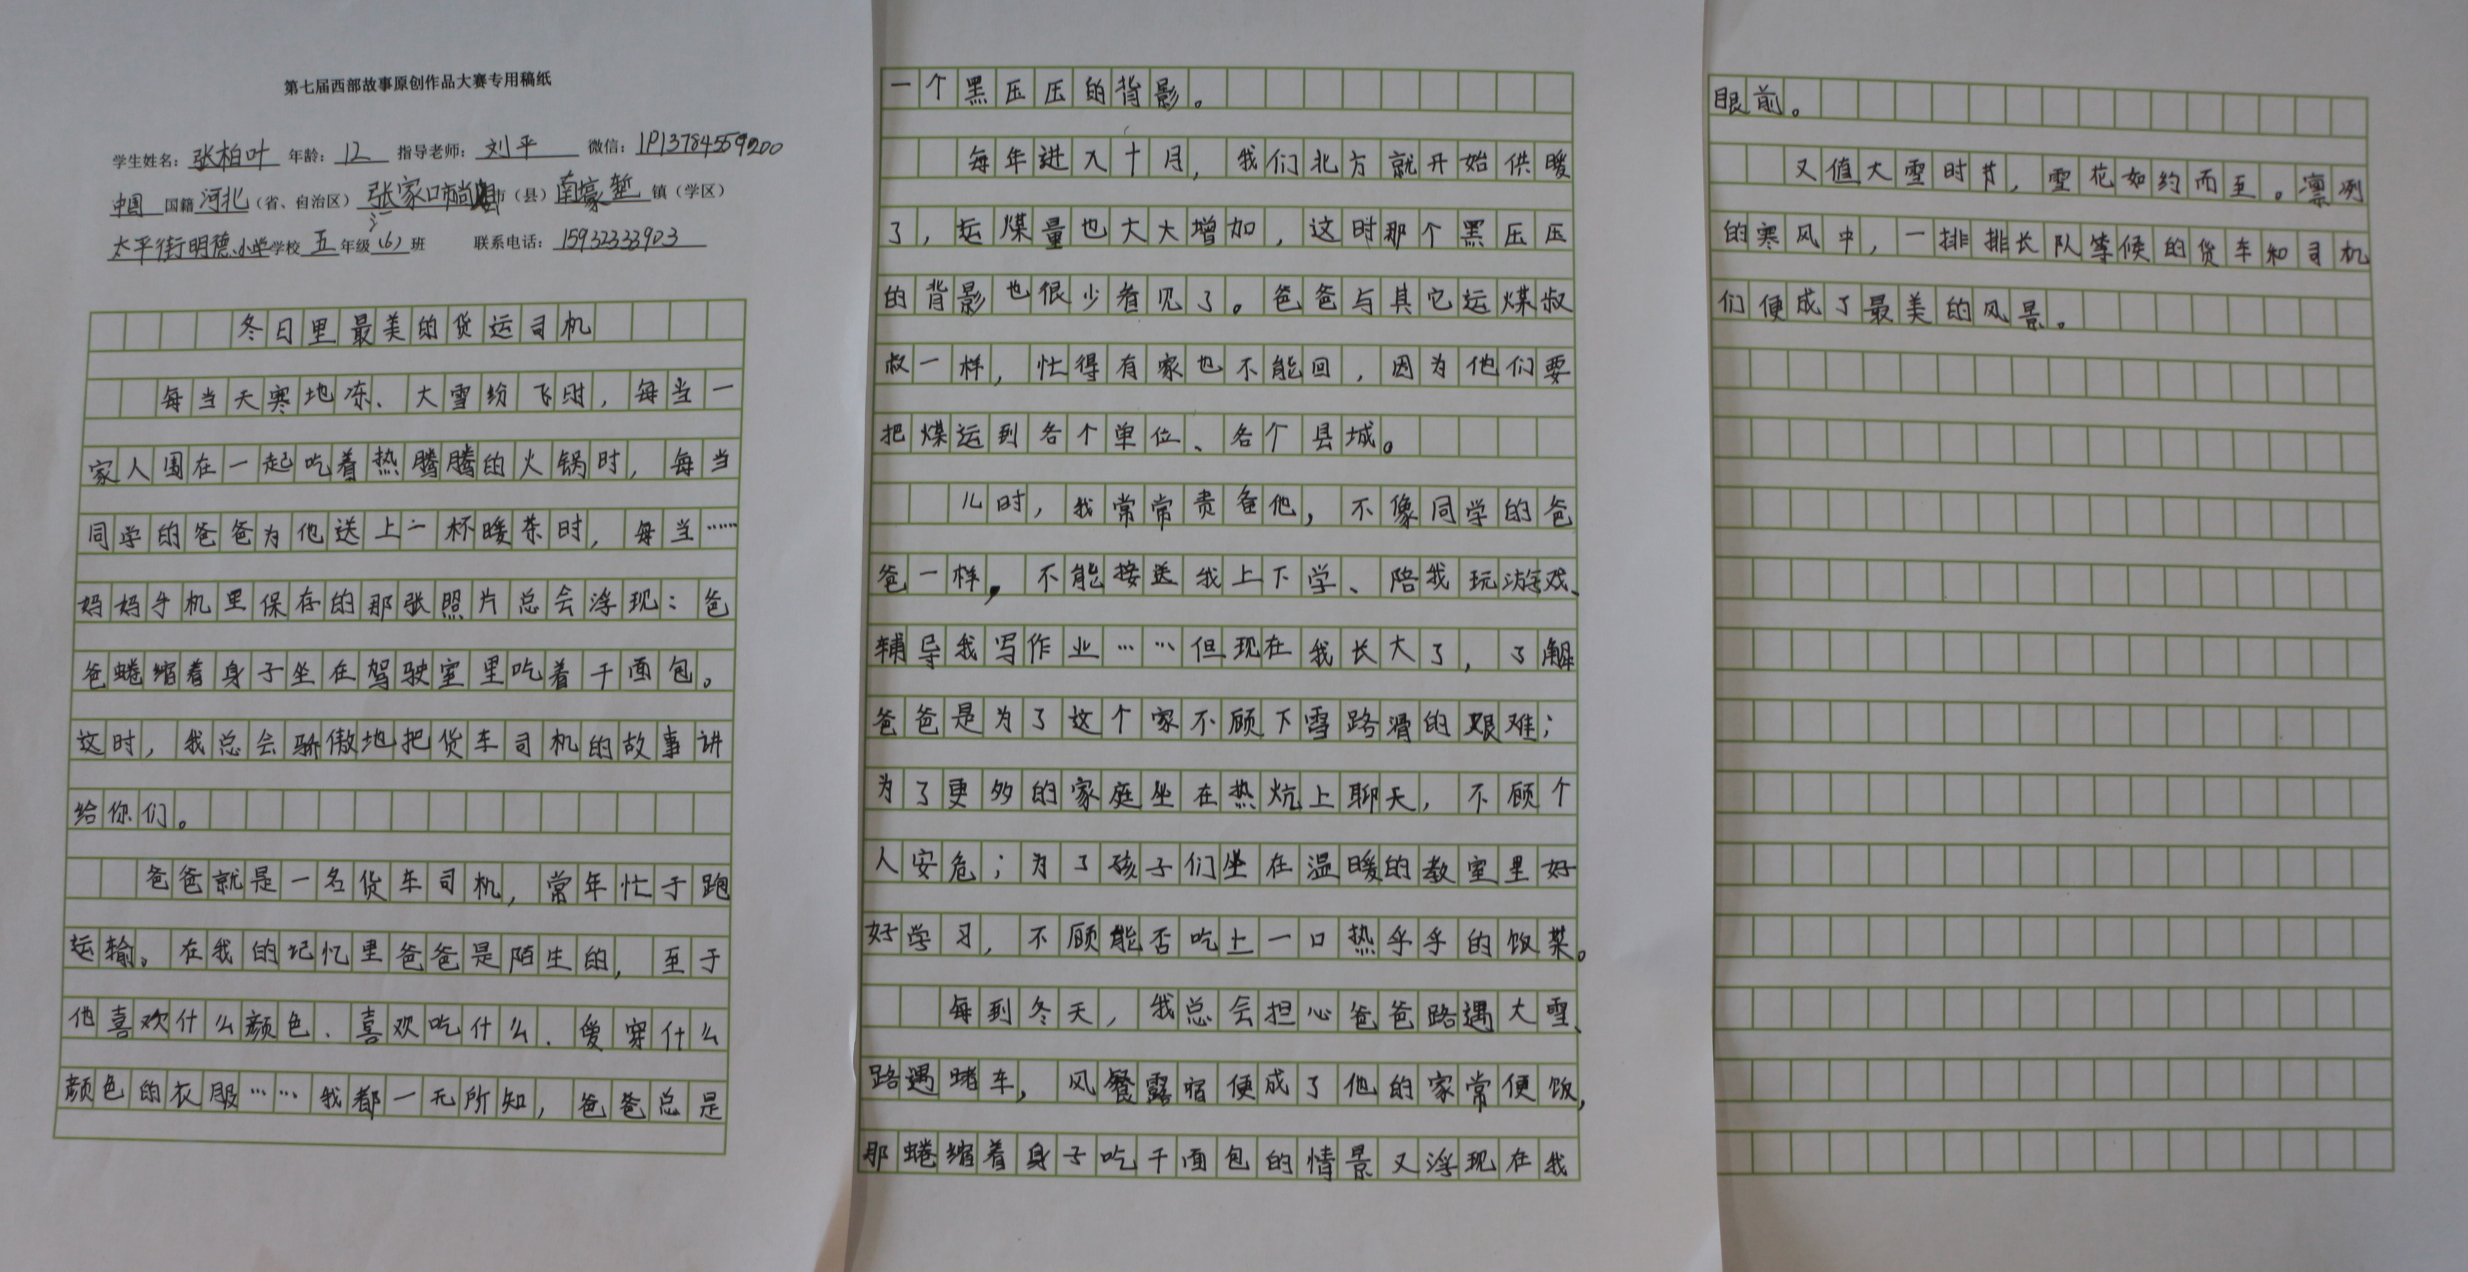 第七届西部故事原创作品大赛专用稿纸
学生姓名：张柏叶 年龄：12 指导老师：刘平 微信：1P13784559200
中国 国籍 河北（省、自治区）张家口市尚义市（县）南壕堑 镇（学区）
太平街明德小学学校 五 年级（6）班 联系电话：15932333903
冬日里最美的货运司机
每当天寒地冻、大雪纷飞时，每当一
家人围在一起吃着热腾腾的火锅时，每当
同学的爸爸为他送上一杯暖茶时，每当……
妈妈手机里保存的那张照片总会浮现：爸
爸蜷缩着身子坐在驾驶室里吃着干面包。
这时，我总会骄傲地把货车司机的故事讲
给你们。
爸爸就是一名货车司机，常年忙于跑
运输。在我的记忆里爸爸是陌生的，至于
他喜欢什么颜色、喜欢吃什么、爱穿什么
颜色的衣服……我都一无所知，爸爸总是
一个黑压压的背影。
每年进入十月，我们北方就开始供暖
了，运煤量也大大增加，这时那个黑压压
的背影也很少看见了。爸爸与其它运煤叔
叔一样，忙得有家也不能回，因为他们要
把煤运到各个单位、各个县城。
儿时，我常常责备他，不像同学的爸
爸一样，不能接送我上下学、陪我玩游戏、
辅导我写作业……但现在我长大了，了解
爸爸是为了这个家不顾下雪路滑的艰难；
为了更多的家庭坐在热炕上聊天，不顾个
人安危；为了孩子们坐在温暖的教室里好
好学习，不顾能否吃上一口热乎乎的饭菜。
每到冬天，我总会担心爸爸路遇大雪、
路遇堵车，风餐露宿便成了他的家常便饭，
那蜷缩着身子吃干面包的情景又浮现在我
眼前。
又值大雪时节，雪花如约而至。凛冽
的寒风中，一排排长队等候的货车和司机
们便成了最美的风景。